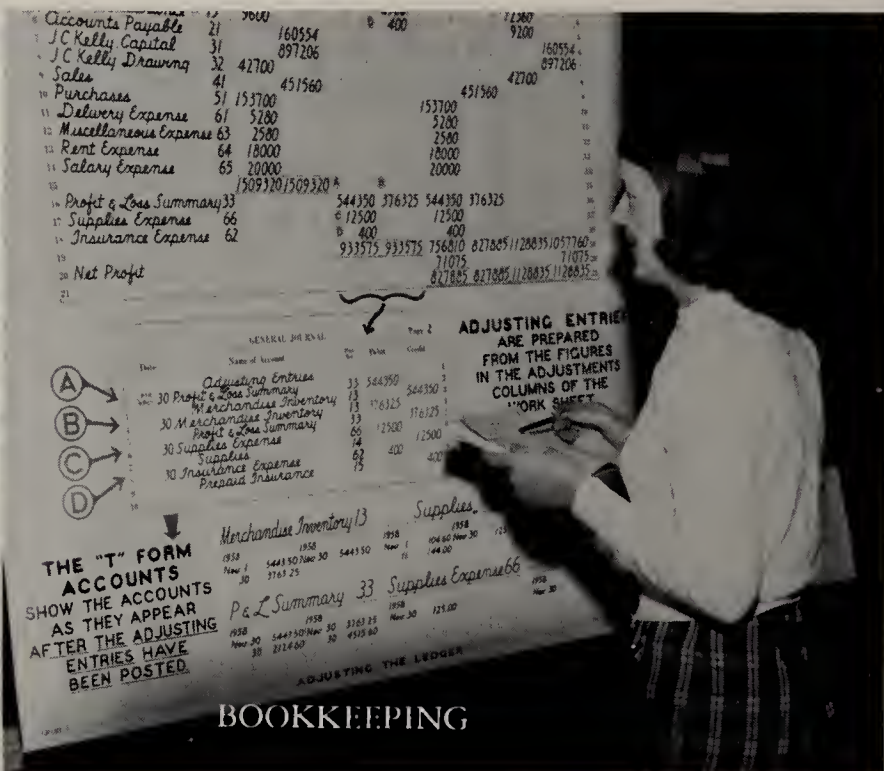 9600
Accounts Payable 21 160554 B 400 9200
J C Kelly Capital 31 897206 160554
J C Kelly Drawing 32 42700 897206
Sales 41 451560 42700
10 Purchases 51 153700 451560
11 Delivery Expense 61 5280 153700
12 Miscellaneous Expense 63 2580 5280
13 Rent Expense 64 18000 2580
14 Salary Expense 65 20000 18000
15 1509320 1509320 20000
16 Profit & Loss Summary 33 544350 376325 544350 376325
17 Supplies Expense 66 C 12500 12500
18 Insurance Expense 62 D 400 400
19 933575 933575 756810 827885 1128835 1057760
20 Net Profit 71075 71075
21 827885 827885 1128835 1128835
GENERAL JOURNAL Page 2
Date Name of Account Debit Credit
Adjusting Entries
A 30 Profit & Loss Summary 33 544350
Merchandise Inventory 13 544350
B 30 Merchandise Inventory 13 376325
Profit & Loss Summary 33 376325
C 30 Supplies Expense 66 12500
Supplies 14 12500
D 30 Insurance Expense 62 400
Prepaid Insurance 15 400
ADJUSTING ENTRIES
ARE PREPARED
FROM THE FIGURES
IN THE ADJUSTMENTS
COLUMNS OF THE
WORK SHEET
THE "T" FORM
ACCOUNTS
SHOW THE ACCOUNTS
AS THEY APPEAR
AFTER THE ADJUSTING
ENTRIES HAVE
BEEN POSTED
Merchandise Inventory 13 Supplies
1958 1958 1958
Nov 1 5443 50 Nov 30 5443 50 Nov 1 106.60 Nov 30
30 3763 25 144.00
P & L Summary 33 Supplies Expense 66
1958 1958 1958 1958
Nov 30 5443 50 Nov 30 3763 25 Nov 30 125.00 Nov 30
30 4515 60
ADJUSTING THE LEDGER
BOOKKEEPING